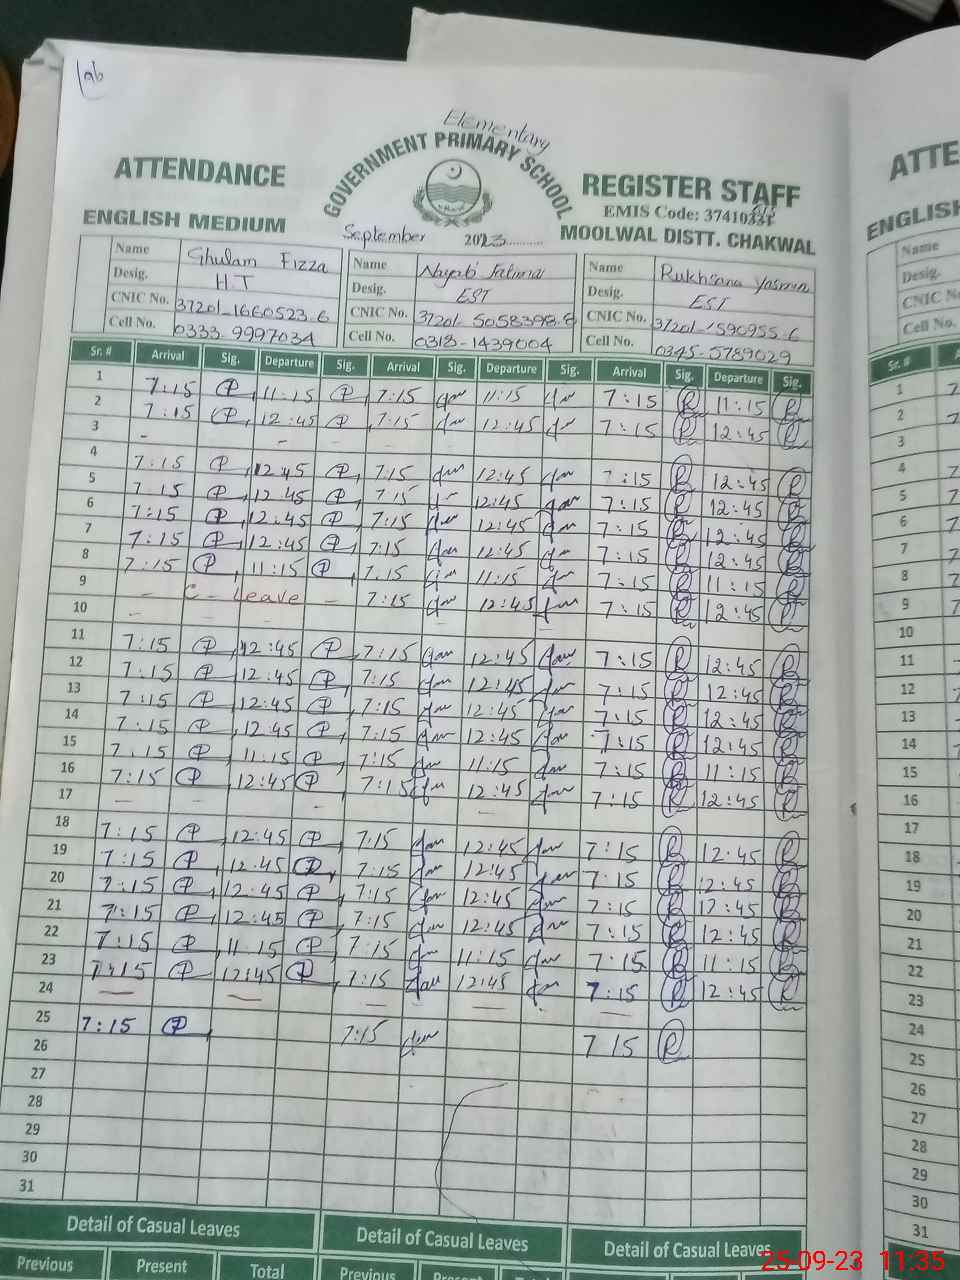 lab
Elementary
GOVERNMENT PRIMARY SCHOOL
ATTENDANCE REGISTER STAFF
EMIS Code: 3741033
ENGLISH MEDIUM September 2023 MOOLWAL DISTT. CHAKWAL
Name Ghulam Fizza Name Fatima Name Rukhsana Yasmin
Desig. H.T Desig. EST Desig. EST
CNIC No. 37201-1660523.6 CNIC No. 37201-5058398.8 CNIC No. 37201-1590955.6
Cell No. 0333-9997034 Cell No. 0313-1439004 Cell No. 0345-5789029
Sr. # Arrival Sig. Departure Sig. Arrival Sig. Departure Sig. Arrival Sig. Departure Sig.
1 7:15 11:15 7:15 11:15 7:15 11:15
2 7:15 12:45 7:15 12:45 7:15 12:45
3 - - - -
4 7:15 12:45 7:15 12:45 7:15 12:45
5 7:15 12:45 7:15 12:45 7:15 12:45
6 7:15 12:45 7:15 12:45 7:15 12:45
7 7:15 12:45 7:15 12:45 7:15 12:45
8 7:15 11:15 7:15 11:15 7:15 11:15
9 - C - Leave - 7:15 12:45 7:15 12:45
10
11 7:15 12:45 7:15 12:45 7:15 12:45
12 7:15 12:45 7:15 12:45 7:15 12:45
13 7:15 12:45 7:15 12:45 7:15 12:45
14 7:15 12:45 7:15 12:45 7:15 12:45
15 7:15 11:15 7:15 11:15 7:15 11:15
16 7:15 12:45 7:15 12:45 7:15 12:45
17 - - - -
18 7:15 12:45 7:15 12:45 7:15 12:45
19 7:15 12:45 7:15 12:45 7:15 12:45
20 7:15 12:45 7:15 12:45 7:15 12:45
21 7:15 12:45 7:15 12:45 7:15 12:45
22 7:15 11:15 7:15 11:15 7:15 11:15
23 7:15 12:45 7:15 12:45 7:15 12:45
24 - - - - -
25 7:15 7:15 7 15
26
27
28
29
30
31
Detail of Casual Leaves Detail of Casual Leaves Detail of Casual Leaves
Previous Present Total Previous
ATTE
ENGLISH
Name
Desig.
CNIC No.
Cell No.
Sr. #
1 7
2 7
3
4 7
5 7
6 7
7 7
8 7
9 7
10
11 7
12 7
13 7
14 7
15 7
16 7
17
18
19
20
21
22
23
24
25
26
27
28
29
30
31
25-09-23 11:35